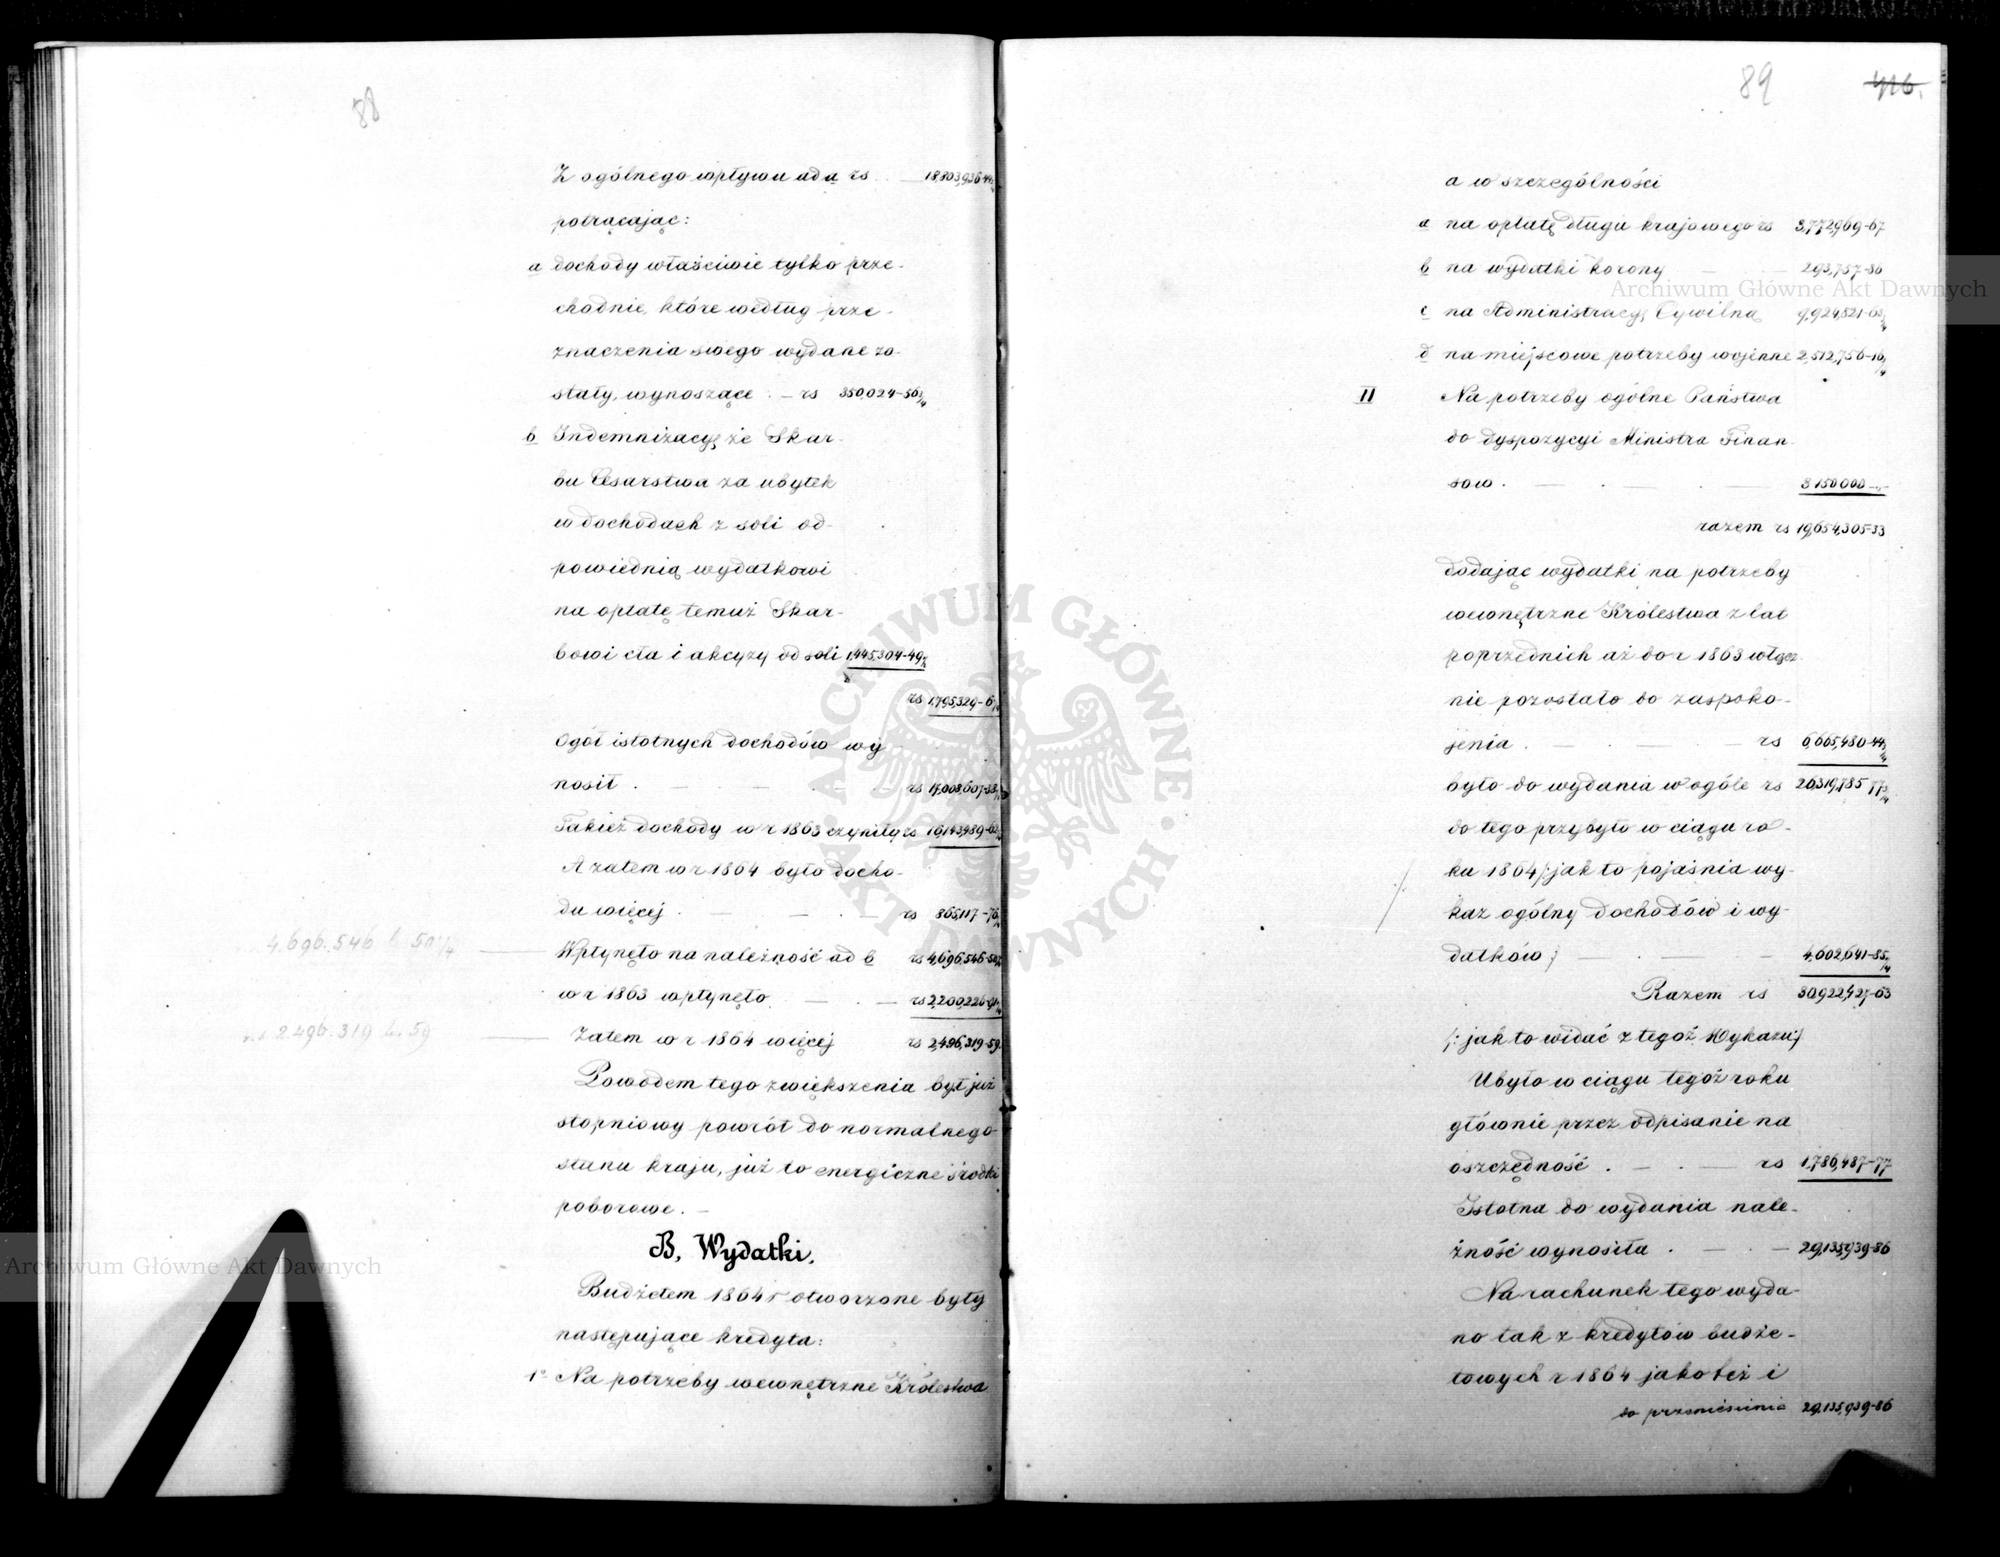 88
Z ogólnego wpływu ad a rs 18,803,936-44
potrącając:
a dochody właściwie tylko prze-
chodnie, które według prze-
znaczenia swego wydane zo-
stały, wynoszące - rs 350,024-56 3/4
b Indemnizacyę ze Skar-
bu Cesarstwa za ubytek
w dochodach z soli od-
powiednią wydatkowi
na opłatę temuż Skar-
bowi cła i akcyzy od soli 1,445,304-49
rs 1,795,329-6
Ogół istotnych dochodów wy-
nosił rs 17,008,607-38
Takież dochody w r 1863 czyniły rs 16,143,489-62
A zatem w r 1864 było docho-
du więcej rs 865,117-76
4.696.546 k. 50 1/4
Wpłynęło na należność ad b rs 4,696,546-50
w r 1863 wpłynęło rs 2,200,226-91
rs 2.496.319 k. 59
Zatem w r 1864 więcej rs 2,496,319-59
Powodem tego zwiększenia był już
stopniowy powrót do normalnego
stanu kraju, już to energiczne środki
poborowe. -
B, Wydatki,
Budżetem 1864 r otworzone były
następujące kredyta:
1° Na potrzeby wewnętrzne Królestwa
89
a w szczególności
a na opłatę długu krajowego rs 3,772,969-67
b na wydatki korony 293,757-86
c na Administracyę Cywilną 9,924,821-63
d na miejscowe potrzeby wojenne 2,512,756-16
II Na potrzeby ogólne Państwa
do dyspozycyi Ministra Finan-
sow. 3150000-,-
razem rs 19,654,305-33
dodając wydatki na potrzeby
wewnętrzne Królestwa z lat
poprzednich aż do r 1863 włącz-
nie pozostało do zaspoko-
jenia . rs 6,665,480-44
było do wydania w ogóle rs 26,319,785 77
do tego przybyło w ciągu ro-
ku 1864 /: jak to pojaśnia wy-
kaz ogólny dochodów i wy-
datków :/ 4,602,641-85
Razem rs 30,922,427-63
/: jak to widać z tegoż Wykazu :/
Ubyło w ciągu tegoż roku
głównie przez odpisanie na
oszczędność . rs 1,786,487-77
Istotna do wydania nale-
żność wynosiła . 29,135,939-86
Na rachunek tego wyda-
no tak z kredytów budże-
towych r 1864 jako też i
do przeniesienia 29,135,939-86
Archiwum Główne Akt Dawnych
Archiwum Główne Akt Dawnych
ARCHIWUM GŁÓWNE AKT DAWNYCH